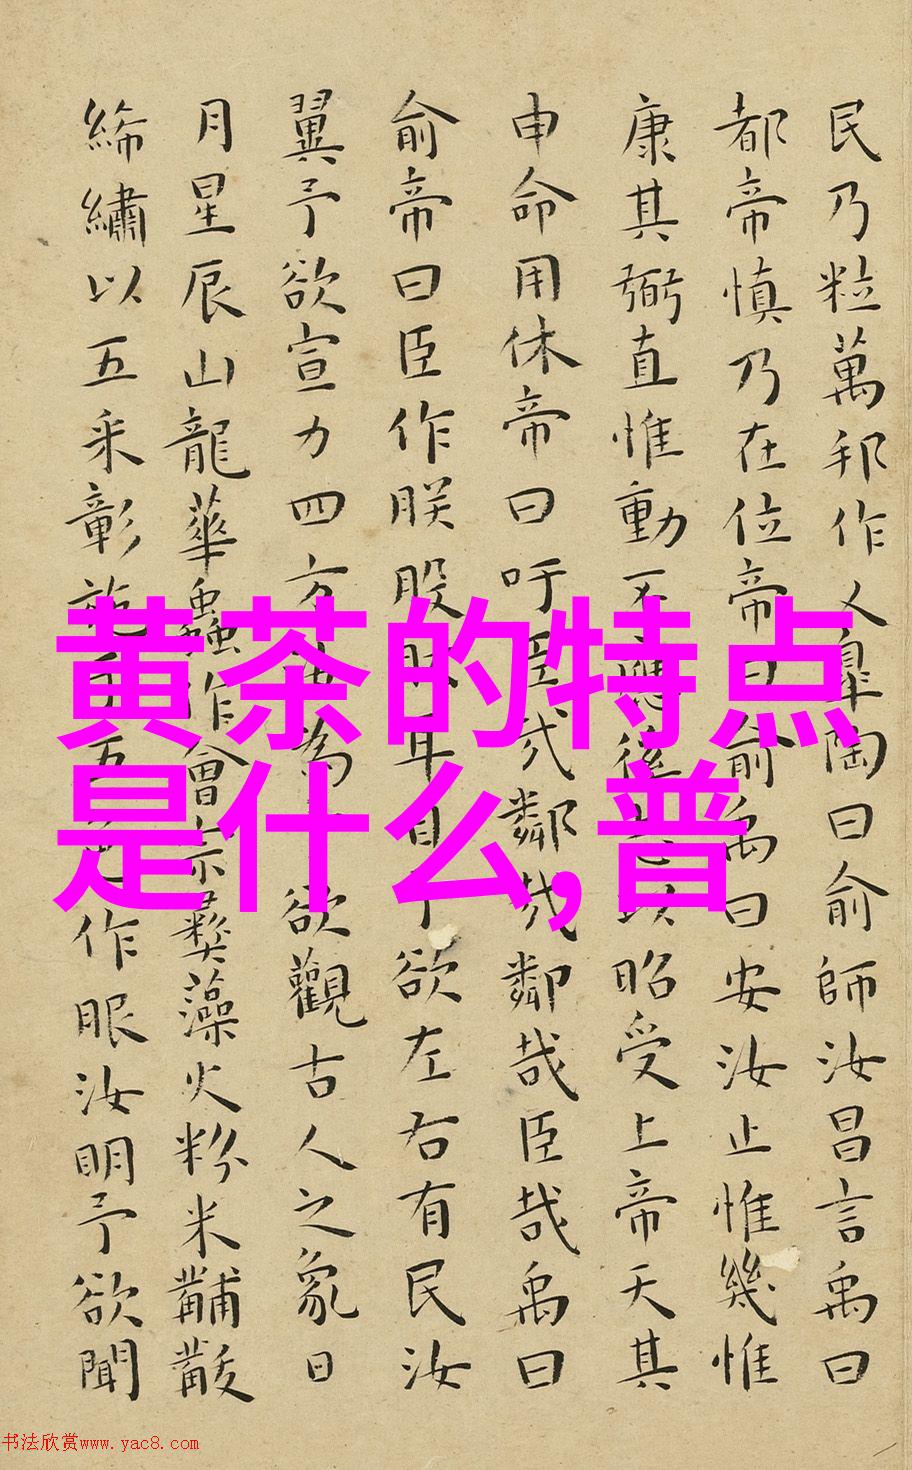 黄茶的特点
是什么,普
民乃粒萬邦作乂皐陶曰俞師汝昌言禹曰
都帝慎乃在位帝曰俞禹曰安汝止惟幾惟
康其弼直惟動丕應徯以昭受上帝天其
申命用休帝曰吁臣哉鄰哉鄰哉臣哉禹曰
俞帝曰臣作朕股肱耳目予欲左右有民汝
翼予欲宣力四方汝為欲觀古人之象日
月星辰山龍華蟲作會宗彝藻火粉米黼黻
絺繡以五采彰施于五色作服汝明予欲聞
书法欣赏www.yac8.com